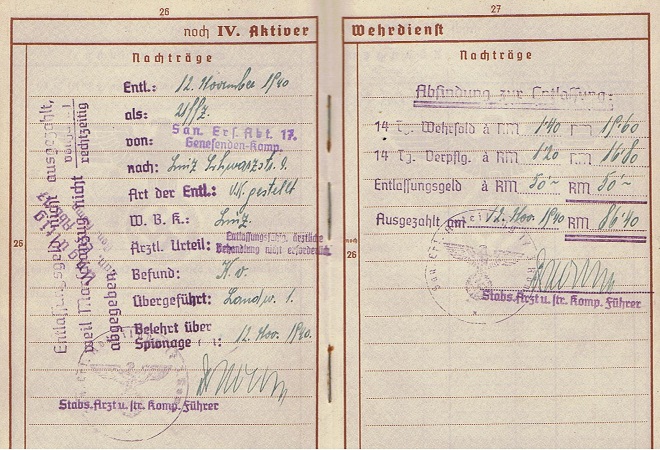 26
noch IV. Aktiver
Nachträge
Entl.: 12. November 1940
als: Uffz.
von: San. Ers. Abt. 17.
Genesenden-Komp.
nach: Linz Schwarzstr. 9.
Art der Entl.: Uk gestellt
W. B. K.: Linz.
Ärztl. Urteil: Entlassungsfähig, ärztliche
Behandlung nicht erforderlich.
Befund: K.v.
Übergeführt: Landw. 1.
Belehrt über
Spionage 12. Nov. 1940.
Stabs. Arzt u. str. Komp. Führer
26
Entlassungsgeld nicht ausgezahlt,
weil nicht rechtzeitig
abgegeben
27
Wehrdienst
Nachträge
Abfindung zur Entlassung:
14 Tg. Wehrsold à RM 1.40 RM 19.60
14 Tg. Verpflg. à RM 1.20 RM 16.80
Entlassungsgeld à RM 50.- RM 50.-
Ausgezahlt am 12. Nov. 1940 RM 86.40
noch
26
Stabs. Arzt u. str. Komp. Führer